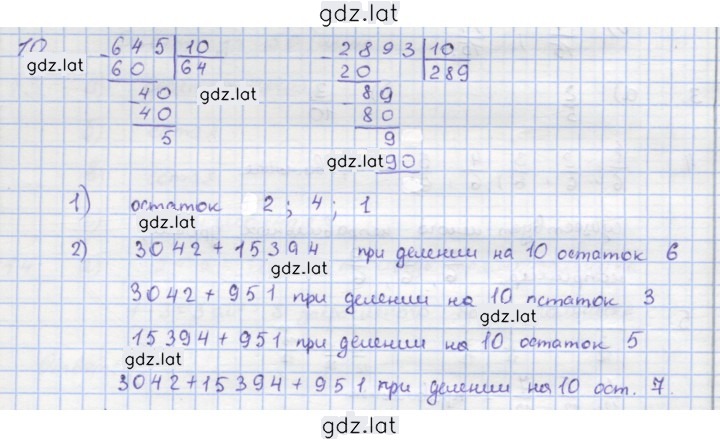 gdz.lat
10
- 645 | 10
60 | 64
gdz.lat
- 40
40
5
gdz.lat
- 2893 | 10
20 | 289
- 89
80
9
gdz.lat
90
1) остаток 2; 4; 1
gdz.lat
2) 3042 + 15394 при делении на 10 остаток 6
gdz.lat
3042 + 951 при делении на 10 пстаток 3
gdz.lat
15394 + 951 при делении на 10 остаток 5
gdz.lat
3042 + 15394 + 951 при делении на 10 ост. 7.
gdz.lat